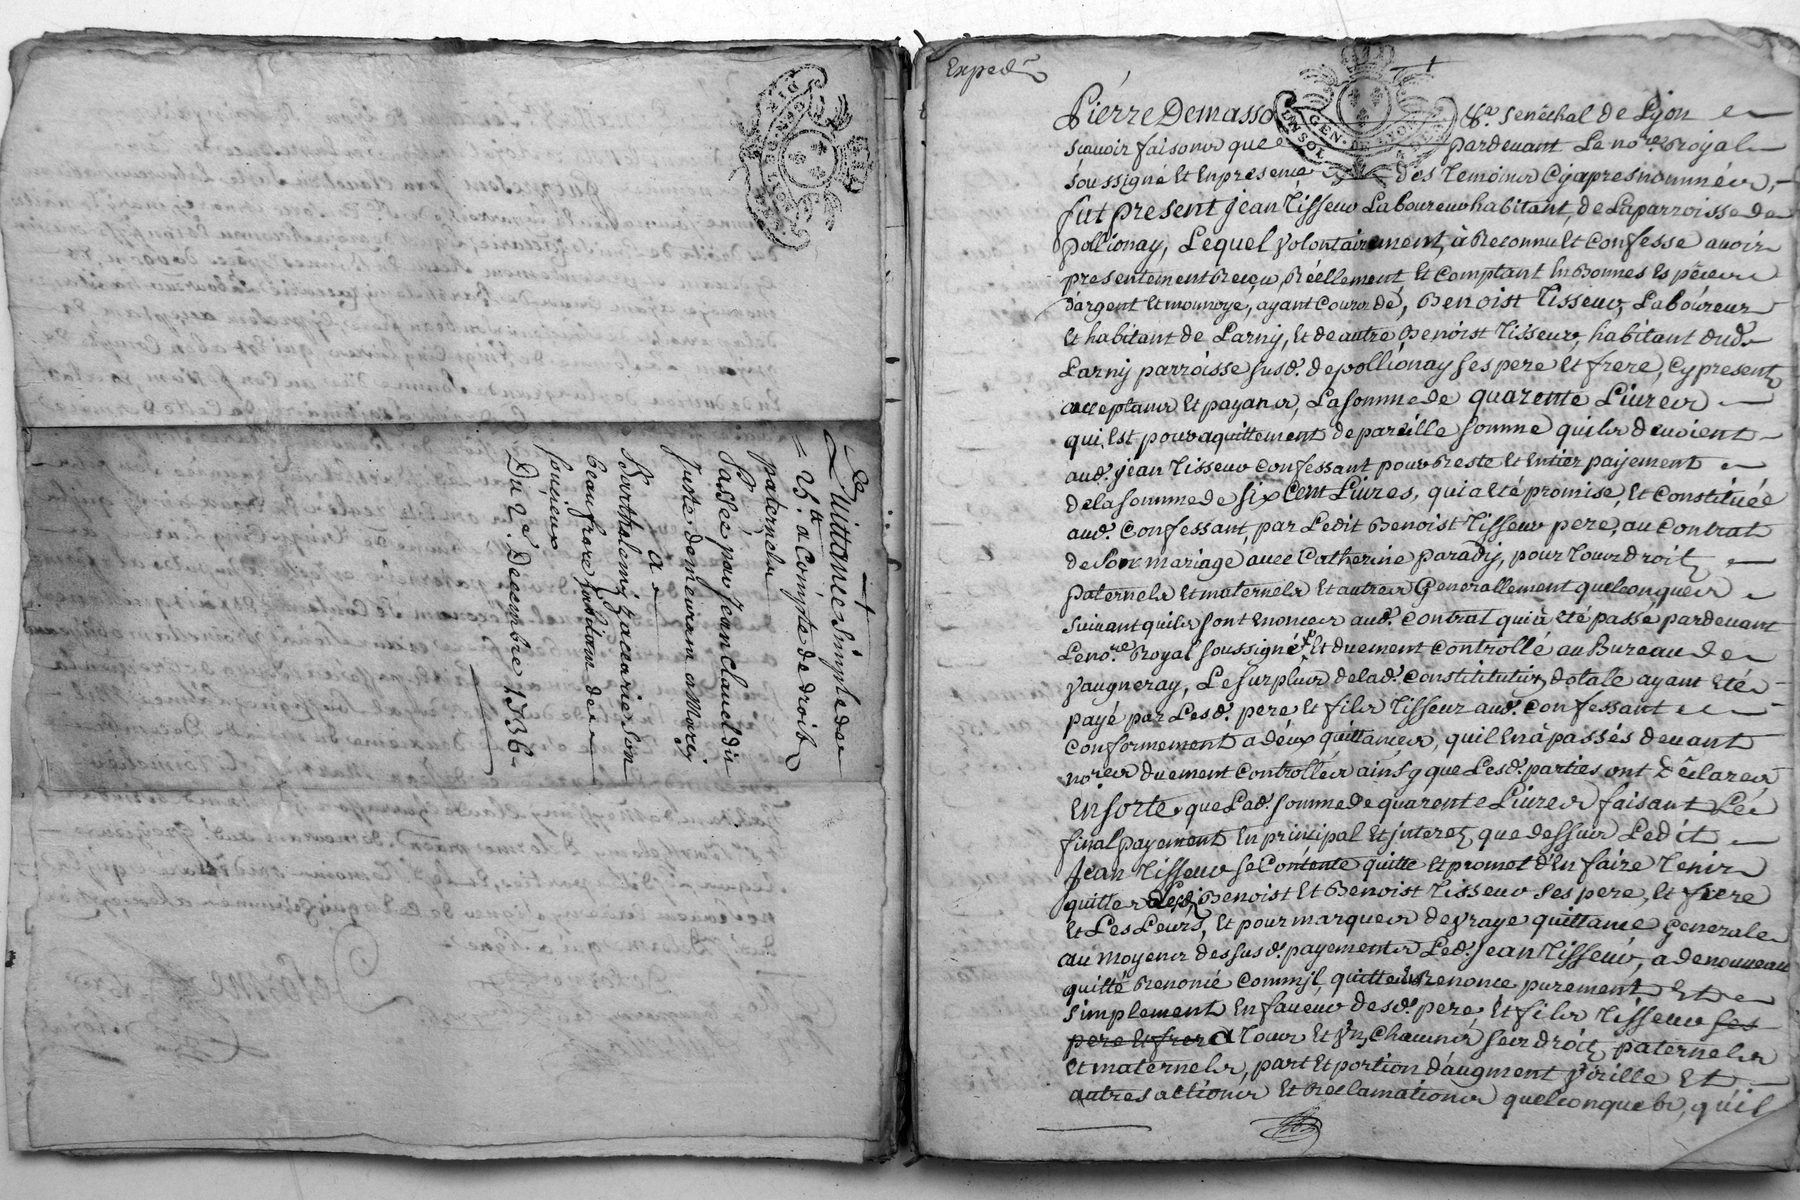 De
Quittance simple de
25.tt a Compte de droits
paternels
Passée par Jean Claude du
Juste demeurant a Morzy
a
Barthelemy Zacearie son
beaufrere habitant de
soucieux
Du 2.e Decembre 1736
Exped.
GEN. DE LYON
UN SOL
Pierre Demasso Sr. Senechal de Lyon
scavoir faisons que pardevant Le no.re Royal
soussigné Et En presence des Temoins Cyapres nommés,
fut present Jean Tisseur Laboureur habitant, de La parroisse de
pollionay, Lequel volontairement, à Reconnu Et Confesse avoir
presentement Reçu Réellement, Et Comptant En Bonnes Espéces
d'argent Et monnoye, ayant Cours de, Benoist Tisseur, Laboureur
Et habitant de Larny, Et de autre Benoist Tisseur, habitant dud.
Larny parroisse susd. de pollionay ses pere Et frere, Cy presents
acceptans Et payans, La somme de quarente Livres
qui Est pour aquittement de pareille somme quils devoient
aud. Jean Tisseur Confessant pour Reste Et Entier payement
de la somme de six Cent Livres, qui a Eté promise, Et Constituée
aud. Confessant, par Ledit Benoist Tisseur pere, au Contrat
de Son mariage avec Catherine paradis, pour Tous droits
paternels Et maternels Et autres Generallement quelconques
suivant quils sont Enoncés aud. Contrat qui à Eté passé pardevant
Le no.re Royal soussigné Et duement Controllé au Bureau de
vaugneray, Le surplus de lad. Constitution dotale ayant Eté
payé par Les d. pere Et fils Tisseur aud. Confessant
Conformement a deux quittances, quil En à passés devant
no.res duement Controllés ainsy que Les d. parties ont Déclarés
En sorte que Lad. somme de quarente Livres faisant Le
final payement En principal Et interets que dessus Ledit
Jean Tisseur se Contente quitte Et promet d'En faire Tenir
quitte Lesd. Benoist Et Benoist Tisseur ses pere, Et frere
Et Les Leurs, Et pour marques de vraye quittance Generale
au moyens des susd. payements Led. Jean Tisseur, a de nouveau
quitté Renoncé Comm'il quitte Et Renonce purement Et
simplement En faveur desd. pere, Et fils Tisseur ses
pere Et frere a Tous Et Un Chacuns ses droits paternels
Et maternels, part Et portion d'augment virille Et
autres actions Et Reclamations quelconques, qu'il